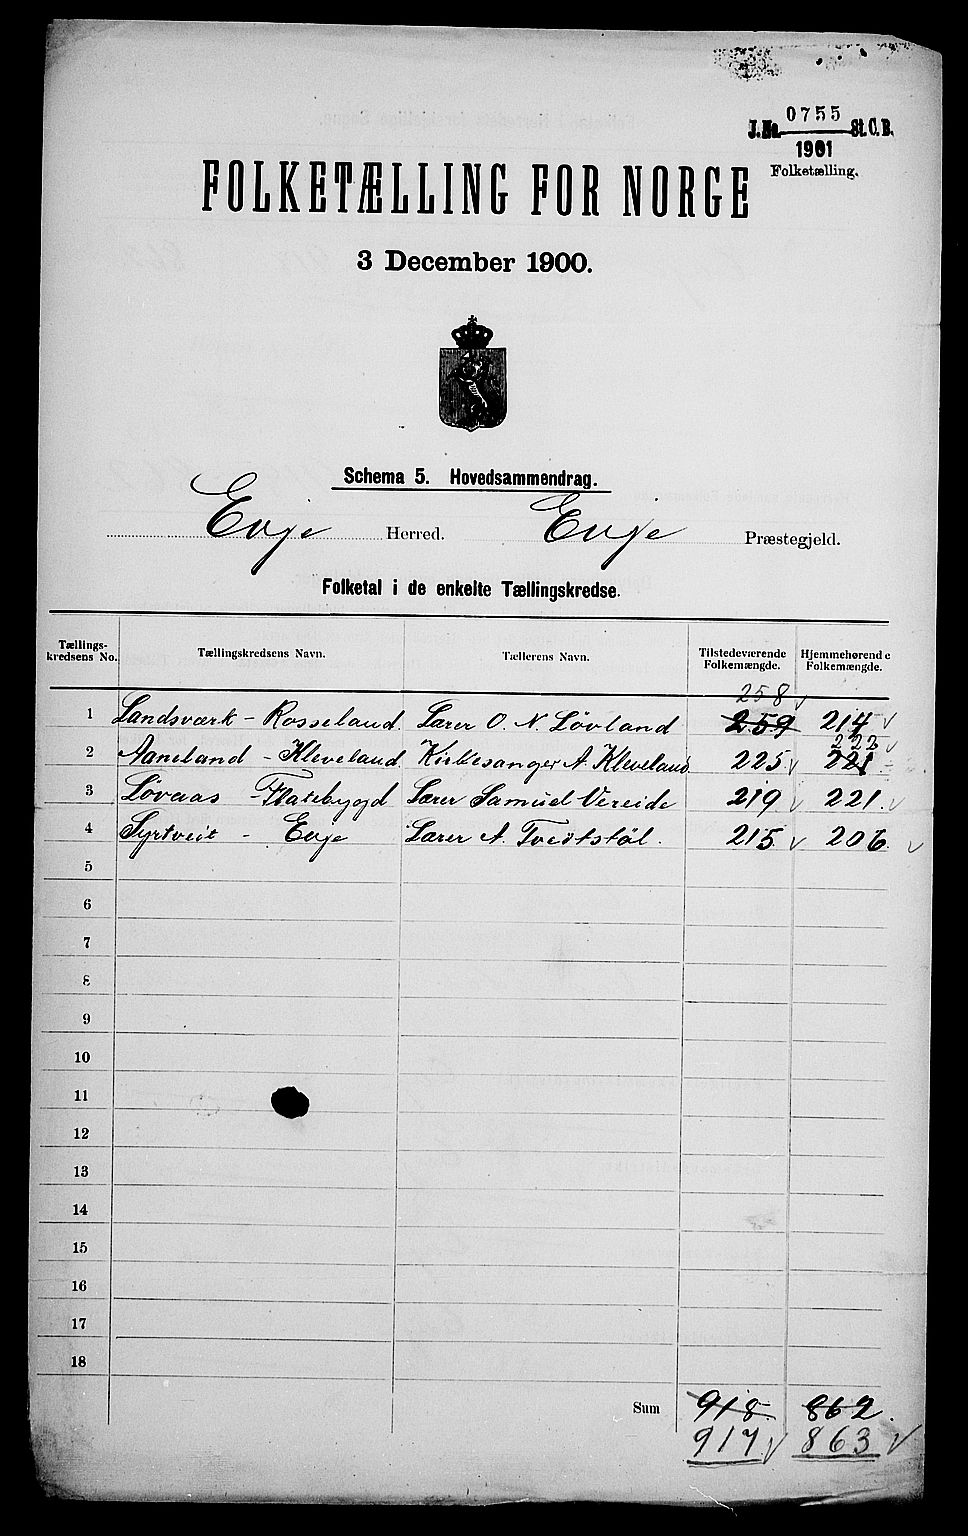 J.No. 0755 St.C.B.
1901
Folketælling.
FOLKETÆLLING FOR NORGE
3 December 1900.
Schema 5. Hovedsammendrag.
Evje Herred. Evje Præstegjeld.
Folketal i de enkelte Tællingskredse.
Tællings-kredsens No. Tællingskredsens Navn. Tællerens Navn. Tilstedeværende Folkemængde. Hjemmehørende Folkemængde.
258
1 Landsværk - Rosseland. Lærer O. N. Lövland 259 214
222
2 Aaneland - Kleveland Kirkesanger A. Kleveland 225 221
3 Lövaas - Flatebygd Lærer Samuel Vereide 219 221.
4 Syrtveit - Evje Lærer A. Tveitstöl. 215 206
5
6
7
8
9
10
11
12
13
14
15
16
17
18
Sum 918 862.
917 863